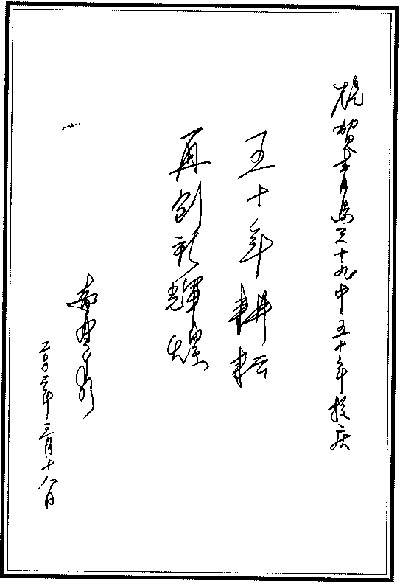 祝贺青岛三十九中五十年校庆
五十年耕耘
再创新辉煌
二〇〇二年三月十八日